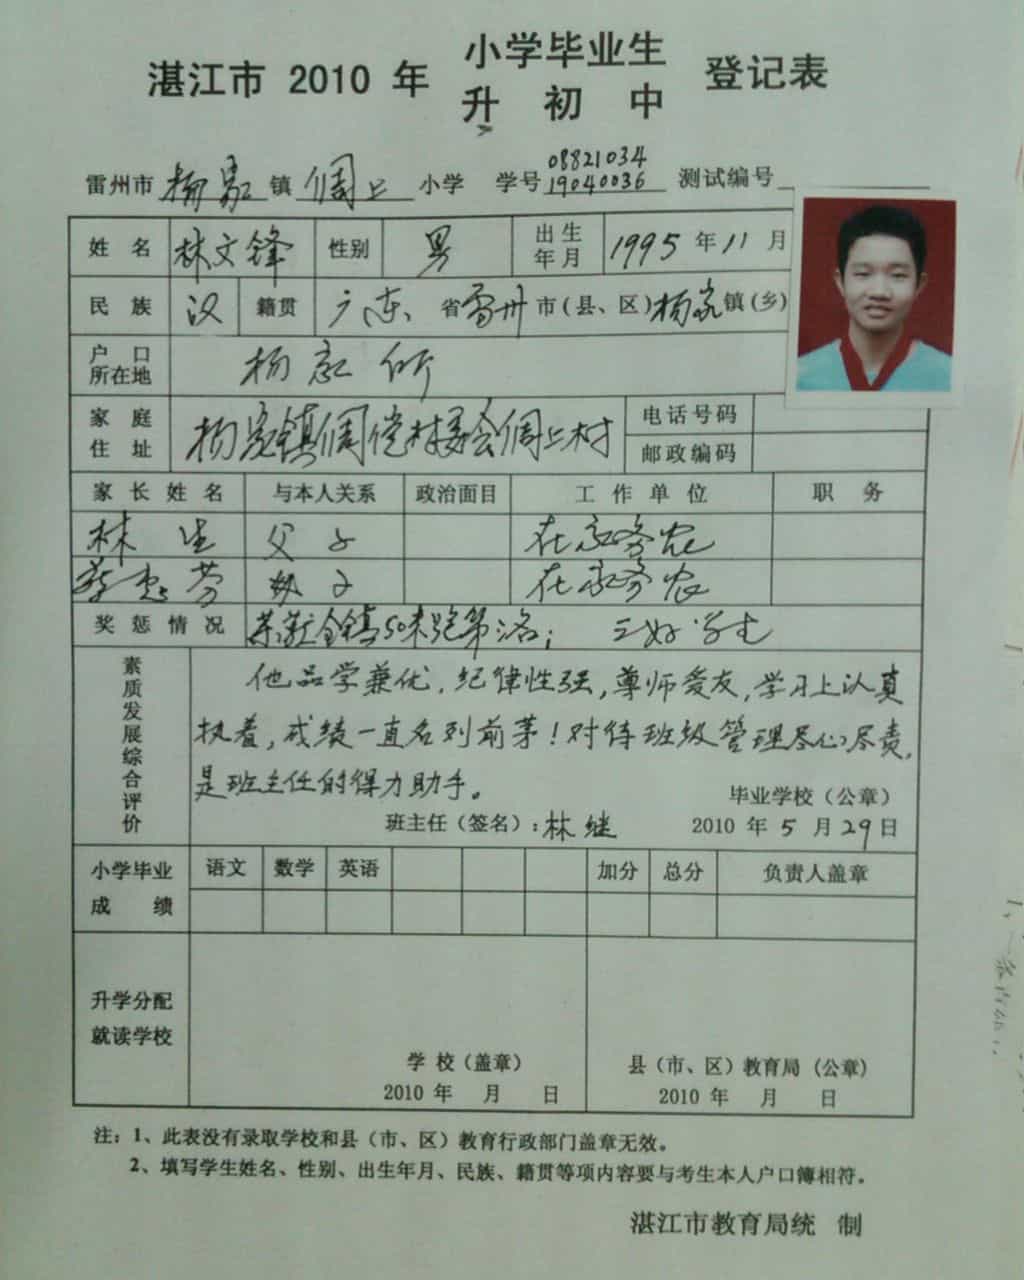 湛江市 2010 年 小学毕业生 登记表
升 初 中
雷州市 杨家 镇 倜上 小学 学号 08821034 测试编号
19040036
姓 名 林文锋 性别 男 出生年月 1995 年 11 月
民 族 汉 籍贯 广东 省 雷州 市(县、区) 杨家 镇(乡)
户 口 所在地 杨家所
家 庭 住 址 杨家镇倜偿村委会倜上村 电话号码
邮政编码
家 长 姓 名 与本人关系 政治面目 工 作 单 位 职 务
林 生 父子 在家务农
芬 子 在家务农
奖 惩 情 况 全镇50米跑第 ; 三好学生
素质发展综合评价
他品学兼优,纪律性强,尊师爱友,学习上认真
执着,成绩一直名列前茅!对待班级管理尽心尽责,
是班主任的得力助手。
毕业学校(公章)
班主任(签名):林继 2010 年 5 月 29 日
小学毕业 成 绩 语文 数学 英语 加分 总分 负责人盖章
升学分配
就读学校
学 校(盖章) 县(市、区)教育局(公章)
2010 年 月 日 2010 年 月 日
注:1、此表没有录取学校和县(市、区)教育行政部门盖章无效。
2、填写学生姓名、性别、出生年月、民族、籍贯等项内容要与考生本人户口簿相符。
湛江市教育局统 制